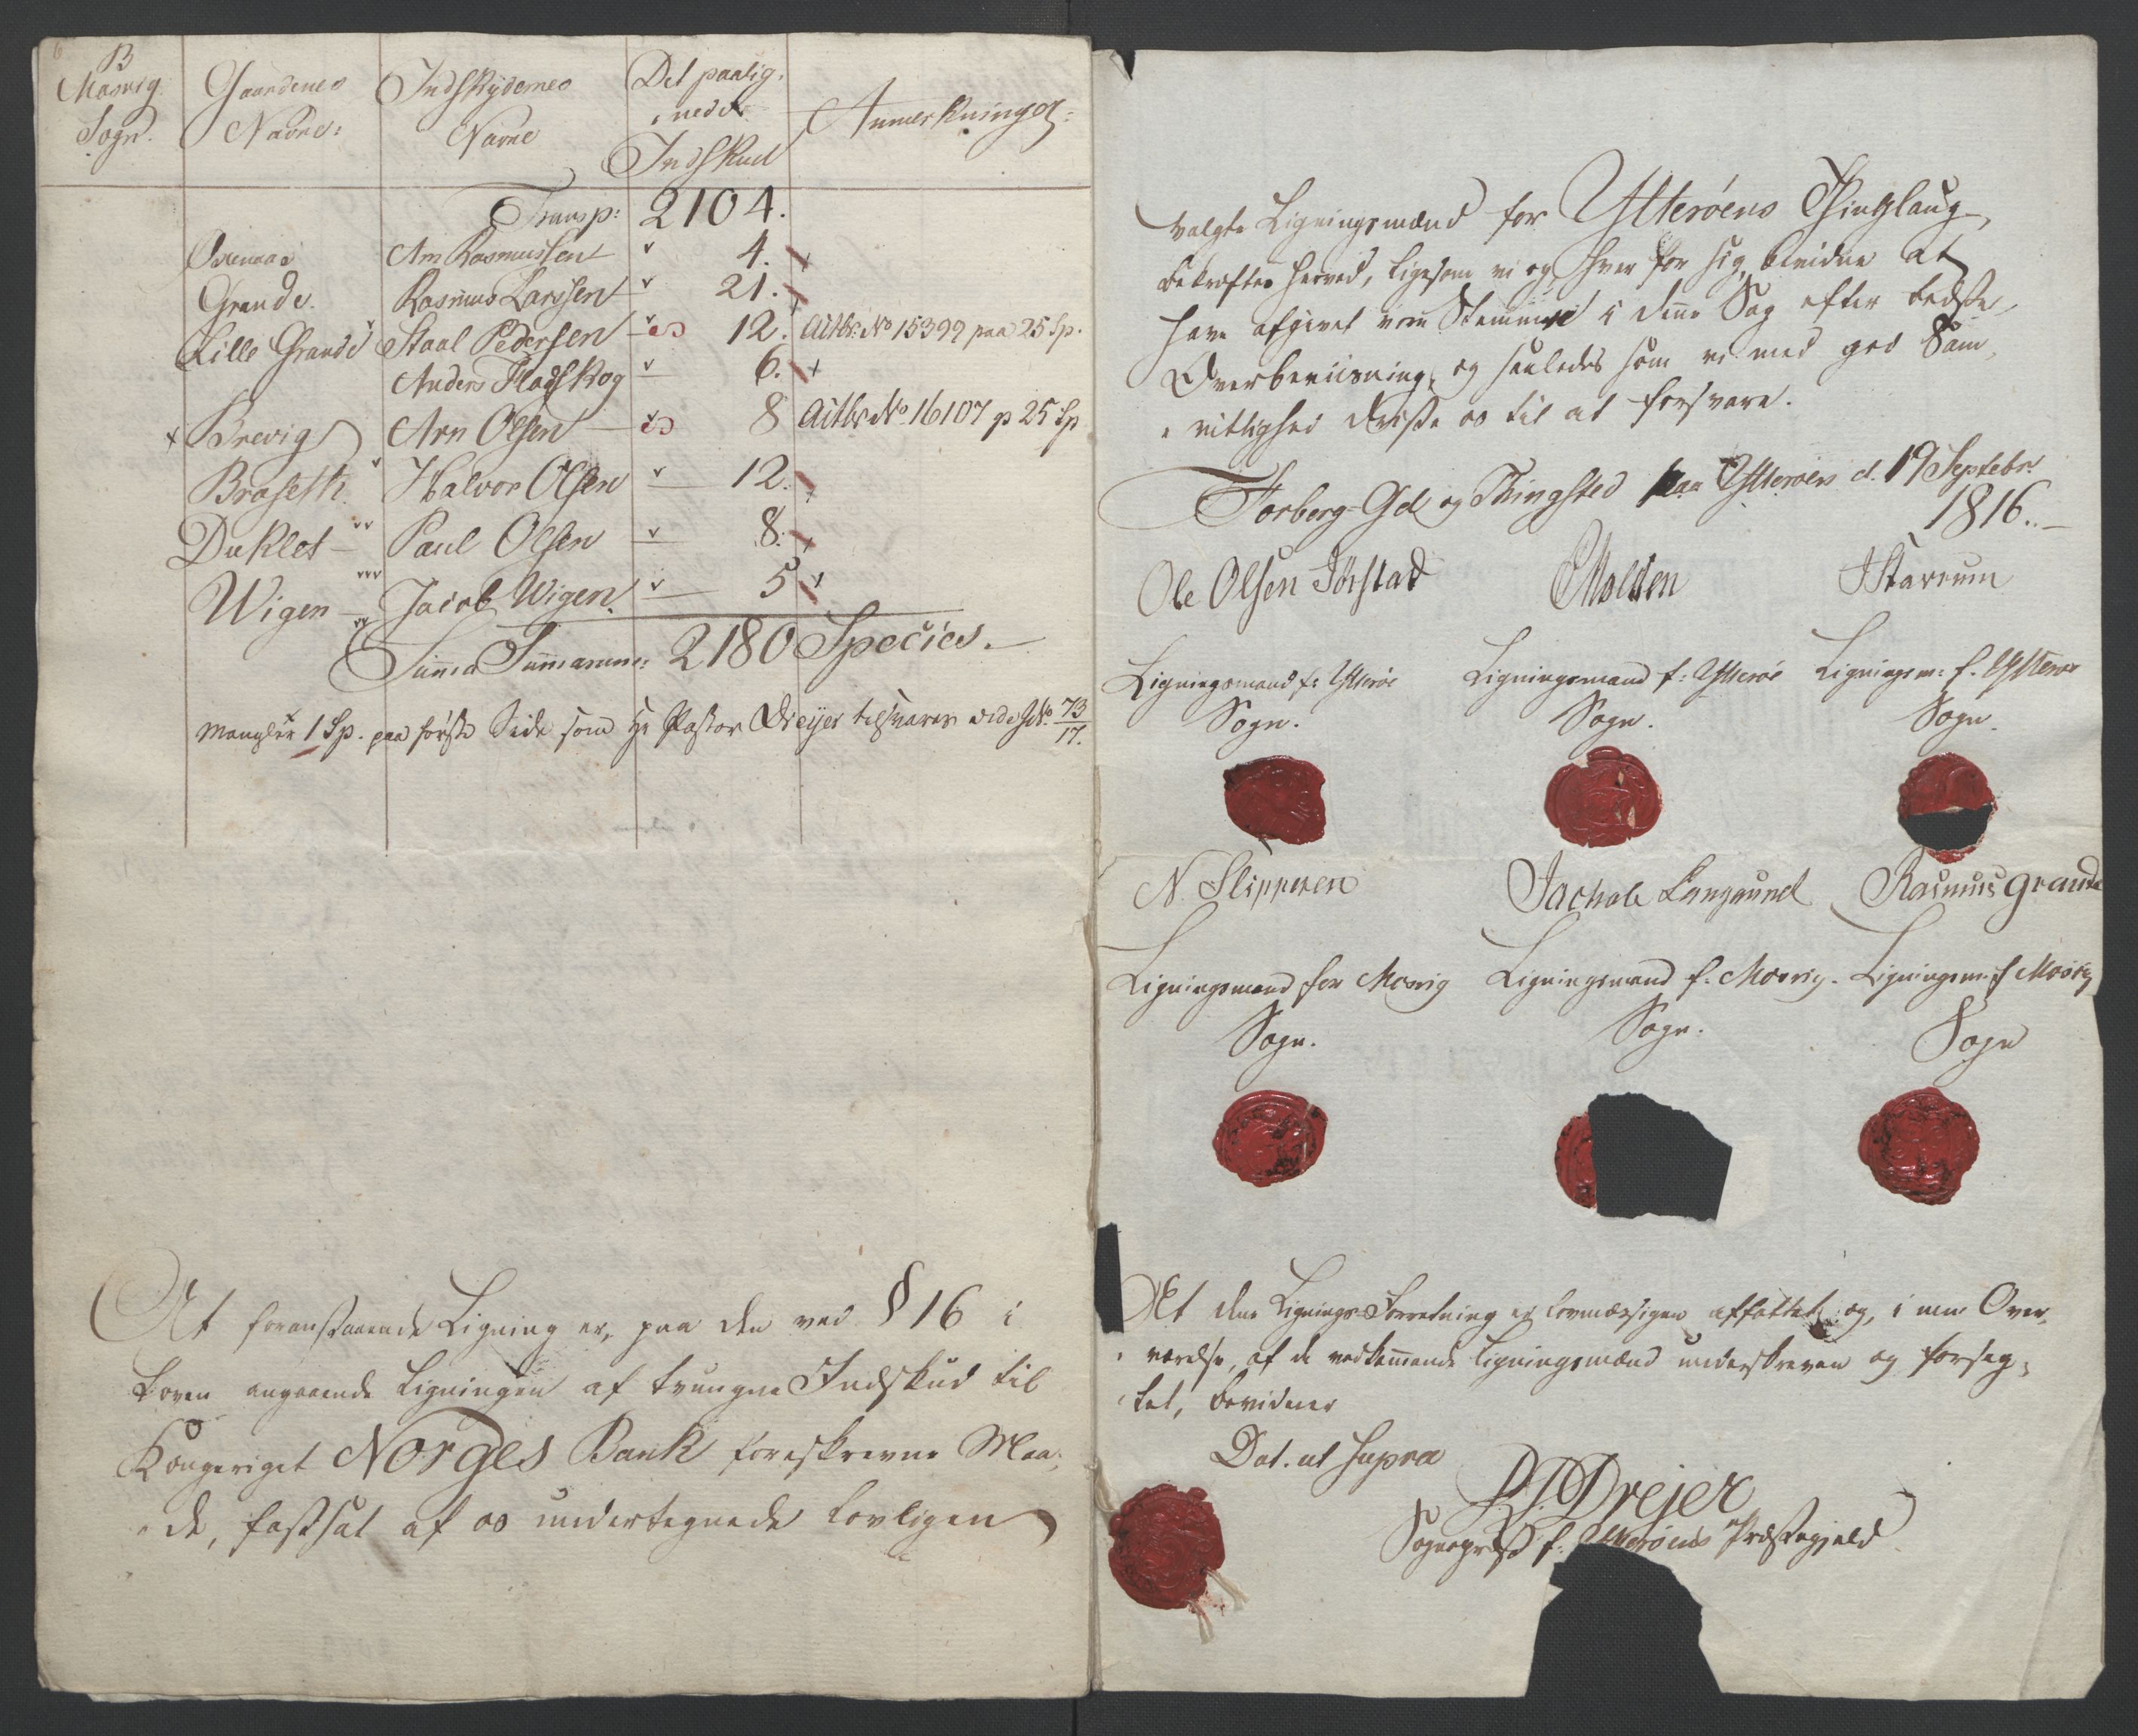 B
Mosvig Sogn.
Gaardenes Navne:
Indskydernes Navne
Det paalignede Indskud
Anmerkninger:
Transp: 2104.
Arn Rasmussen 4.
Grande. Rasmus Larssen 21.
Lille Grande Staal Pedersen 12. Actbr. No 15399 paa 25 Sp.
Anders Fladskog 6.
Brevig Arn Olsen 8 Actbr No. 16107 p 25 Sp
Braseth Halvor Olsen 12.
Duklet Paul Olsen 8.
Wigen Jacob Wigen 5
Summa Summarum: 2180 Species.
Mangler 1 Sp. paa første Side som Hr Pastor Dreyer tilsvarer vide No. 73/17.
At foranstaaende Ligning er, paa den ved § 16 i
Loven angaaende Ligningen af tvungne Indskud til
Kongeriget Norges Bank foreskrevne Maa-
de, fastsat af os undertegnede lovligen
valgte Ligningsmænd for Ytterøens Thinglaug,
bekræftes herved, ligesom vi og, hver for sig, bevidne at
have afgivet vore Stemmer i denne Sag efter bedste
Overbeviisning, og saaledes som vi med god Sam-
vittighed trøste os til at forsvare.
Forberg-Gd og Thingsted paa Ytterøen d. 19 Septebr.
1816.
Ole Olsen Jørstad
Molden
JStavrum
Ligningsmand f: Ytterøe Sogn.
Ligningsmand f: Ytterøe Sogn.
Ligningsm: f. Ytterøe Sogn.
N. Slipperen
Jachob Langaund
Rasmus Grande
Ligningsmand for Mosvig Sogn.
Ligningsmand f. Mosvig Sogn.
Ligningsm: f Mosvig Sogn
At denne Lignings-Forretning er lovmæssigen affattet og, i min Over-
værelse, af de vedkommende Ligningsmænd underskreven og forseg-
let, bevidner
Dat. ut supra
Drejer
Sogneprest f. Ytterøens Præstegjeld